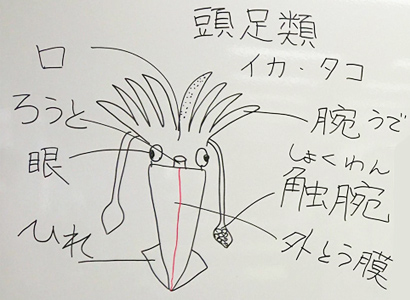 頭足類
イカ・タコ
口
ろうと
眼
ひれ
腕うで
しょくわん
触腕
外とう膜